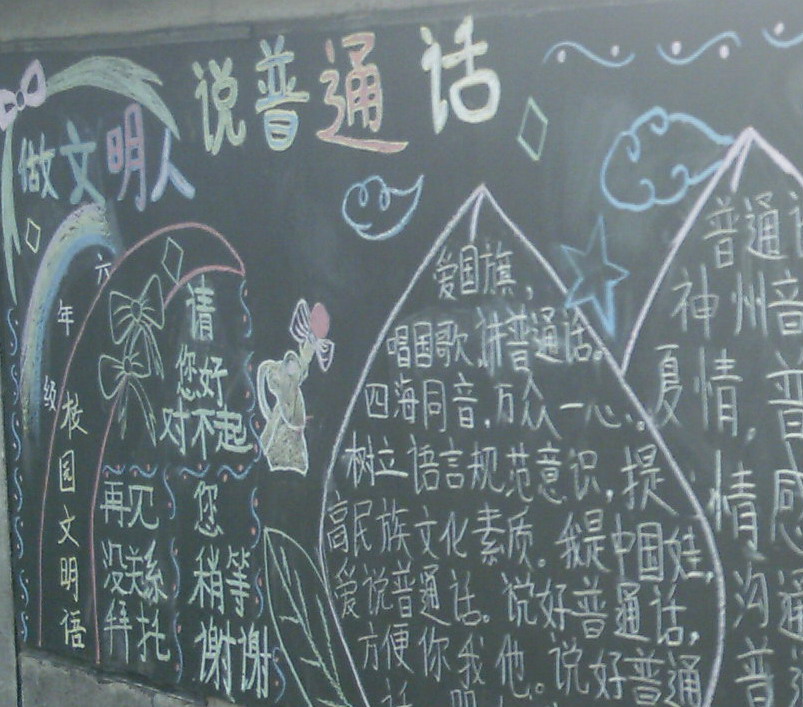 说普通话
做文明人
六年级
校园文明语
请
您好
对不起
再见
没关系
拜托
您
稍等
谢谢
爱国旗，
唱国歌，讲普通话。
四海同音，万众一心。
树立语言规范意识，提
高民族文化素质。我是中国娃，
爱说普通话。说好普通话，
方便你我他。说好普通
普通
神州音
夏情，普
情，感
沟通
普通